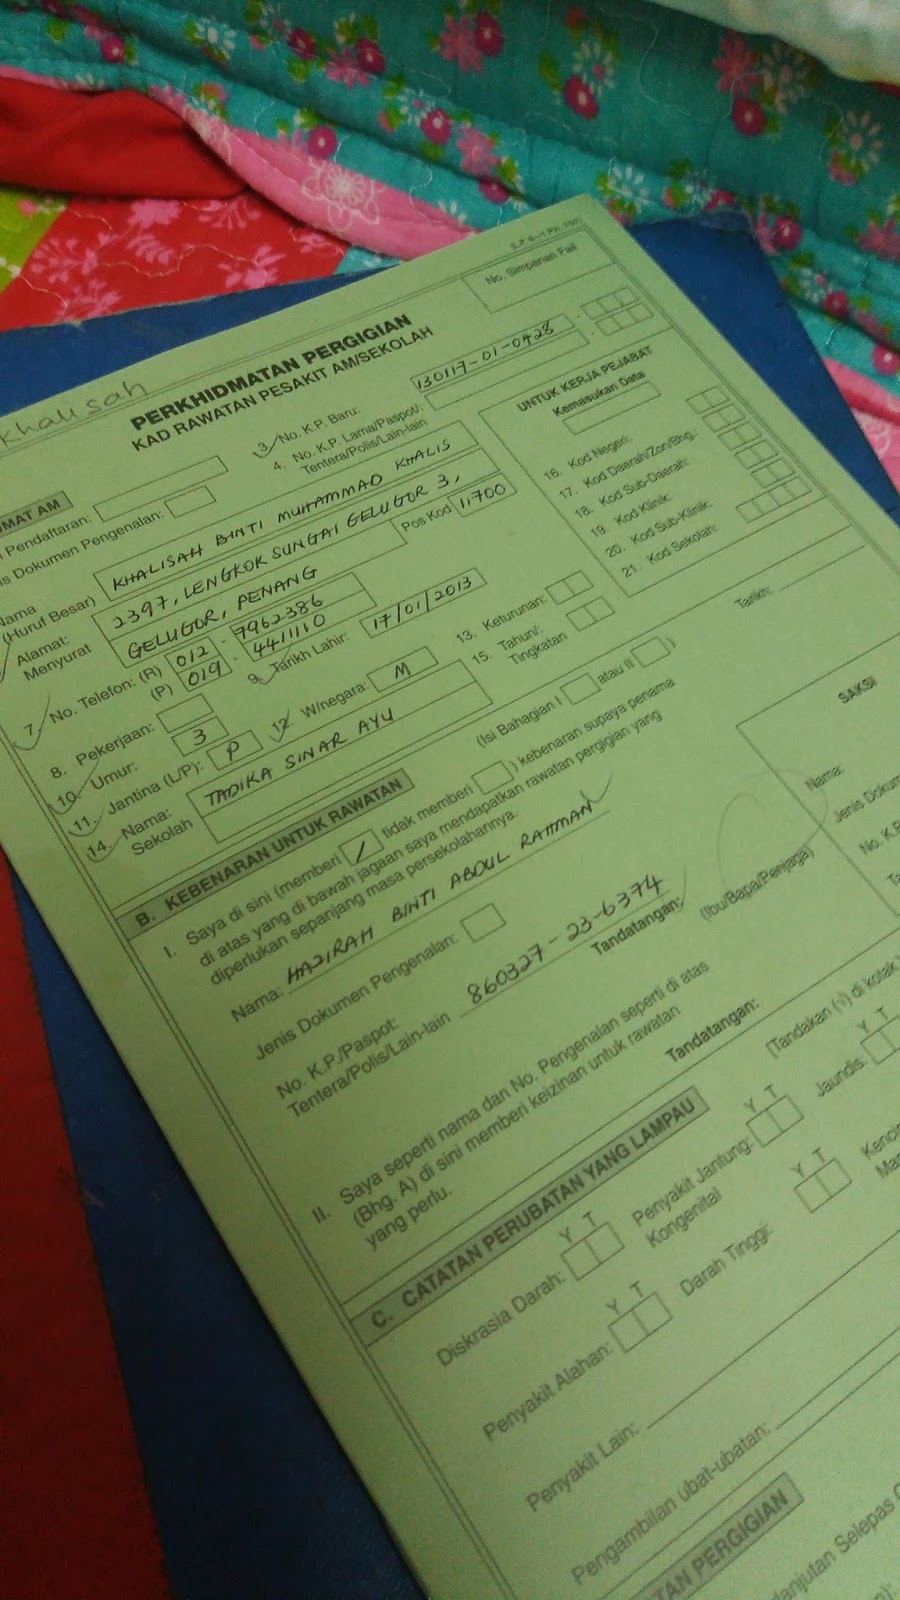 (L.P. 8-1 Pin. 2/97)
No. Simpanan Fail
khalisah
PERKHIDMATAN PERGIGIAN
KAD RAWATAN PESAKIT AM/SEKOLAH
3. No. K.P. Baru: 130117-01-0428
4. No. K.P. Lama/Paspot/:
Tentera/Polis/Lain-lain
UNTUK KERJA PEJABAT
Kemasukan Data
16. Kod Negeri:
17. Kod Daerah/Zon/Bhg.:
18. Kod Sub-Daerah:
19. Kod Klinik:
20. Kod Sub-Klinik:
21. Kod Sekolah:
UMAT AM
Pendaftaran:
is Dokumen Pengenalan:
Nama KHALISAH BINTI MUHAMMAD KHALIS
(Huruf Besar)
Alamat: 2397, LENGKOK SUNGAI GELUGOR 3,
Menyurat GELUGOR, PENANG Pos Kod 11700
7. No. Telefon: (R) 012 - 7962386
(P) 019 - 4411110
8. Pekerjaan:
9. Tarikh Lahir: 17/01/2013
10. Umur: 3
11. Jantina (L/P): P
12. W/negara: M
13. Keturunan:
14. Nama: TADIKA SINAR AYU
Sekolah
15. Tahun/:
Tingkatan
B. KEBENARAN UNTUK RAWATAN
(Isi Bahagian I atau II )
Tarikh:
I. Saya di sini (memberi / tidak memberi ) kebenaran supaya penama
di atas yang di bawah jagaan saya mendapatkan rawatan pergigian yang
diperlukan sepanjang masa persekolahannya.
Nama: HAZIRAH BINTI ABDUL RAHMAN
Jenis Dokumen Pengenalan:
No. K.P./Paspot:
Tentera/Polis/Lain-lain 860327-23-6374
Tandatangan:
(Ibu/Bapa/Penjaga)
SAKSI
Nama:
Jenis Dokum
No. K.P
II. Saya seperti nama dan No. Pengenalan seperti di atas
(Bhg. A) di sini memberi keizinan untuk rawatan
yang perlu.
Tandatangan:
C. CATATAN PERUBATAN YANG LAMPAU
[Tandakan (√) di kotak
Diskrasia Darah: Y T
Penyakit Jantung: Y T
Kongenital
Jaundis: Y T
Penyakit Alahan: Y T
Darah Tinggi: Y T
Kencin
Man
Penyakit Lain:
Pengambilan ubat-ubatan:
TAN PERGIGIAN
danjutan Selepas